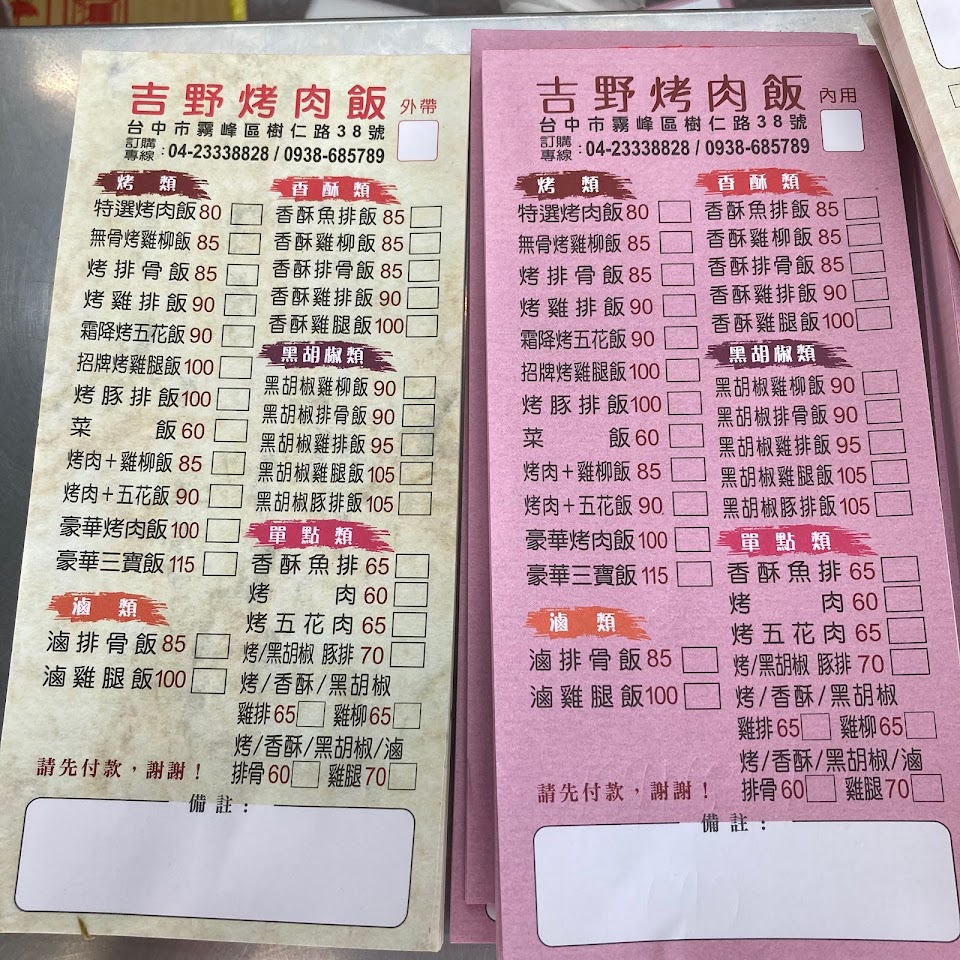 吉野烤肉飯 外帶
台中市霧峰區樹仁路38號
訂購專線：04-23338828 / 0938-685789
烤類
特選烤肉飯 80
無骨烤雞柳飯 85
烤排骨飯 85
烤雞排飯 90
霜降烤五花飯 90
招牌烤雞腿飯 100
烤豚排飯 100
菜飯 60
烤肉＋雞柳飯 85
烤肉＋五花飯 90
豪華烤肉飯 100
豪華三寶飯 115
滷類
滷排骨飯 85
滷雞腿飯 100
請先付款，謝謝！
香酥類
香酥魚排飯 85
香酥雞柳飯 85
香酥排骨飯 85
香酥雞排飯 90
香酥雞腿飯 100
黑胡椒類
黑胡椒雞柳飯 90
黑胡椒排骨飯 90
黑胡椒雞排飯 95
黑胡椒雞腿飯 105
黑胡椒豚排飯 105
單點類
香酥魚排 65
烤肉 60
烤五花肉 65
烤/黑胡椒 豚排 70
烤/香酥/黑胡椒
雞排 65 雞柳 65
烤/香酥/黑胡椒/滷
排骨 60 雞腿 70
備註：
吉野烤肉飯 內用
台中市霧峰區樹仁路38號
訂購專線：04-23338828 / 0938-685789
烤類
特選烤肉飯 80
無骨烤雞柳飯 85
烤排骨飯 85
烤雞排飯 90
霜降烤五花飯 90
招牌烤雞腿飯 100
烤豚排飯 100
菜飯 60
烤肉＋雞柳飯 85
烤肉＋五花飯 90
豪華烤肉飯 100
豪華三寶飯 115
滷類
滷排骨飯 85
滷雞腿飯 100
請先付款，謝謝！
香酥類
香酥魚排飯 85
香酥雞柳飯 85
香酥排骨飯 85
香酥雞排飯 90
香酥雞腿飯 100
黑胡椒類
黑胡椒雞柳飯 90
黑胡椒排骨飯 90
黑胡椒雞排飯 95
黑胡椒雞腿飯 105
黑胡椒豚排飯 105
單點類
香酥魚排 65
烤肉 60
烤五花肉 65
烤/黑胡椒 豚排 70
烤/香酥/黑胡椒
雞排 65 雞柳 65
烤/香酥/黑胡椒/滷
排骨 60 雞腿 70
備註：